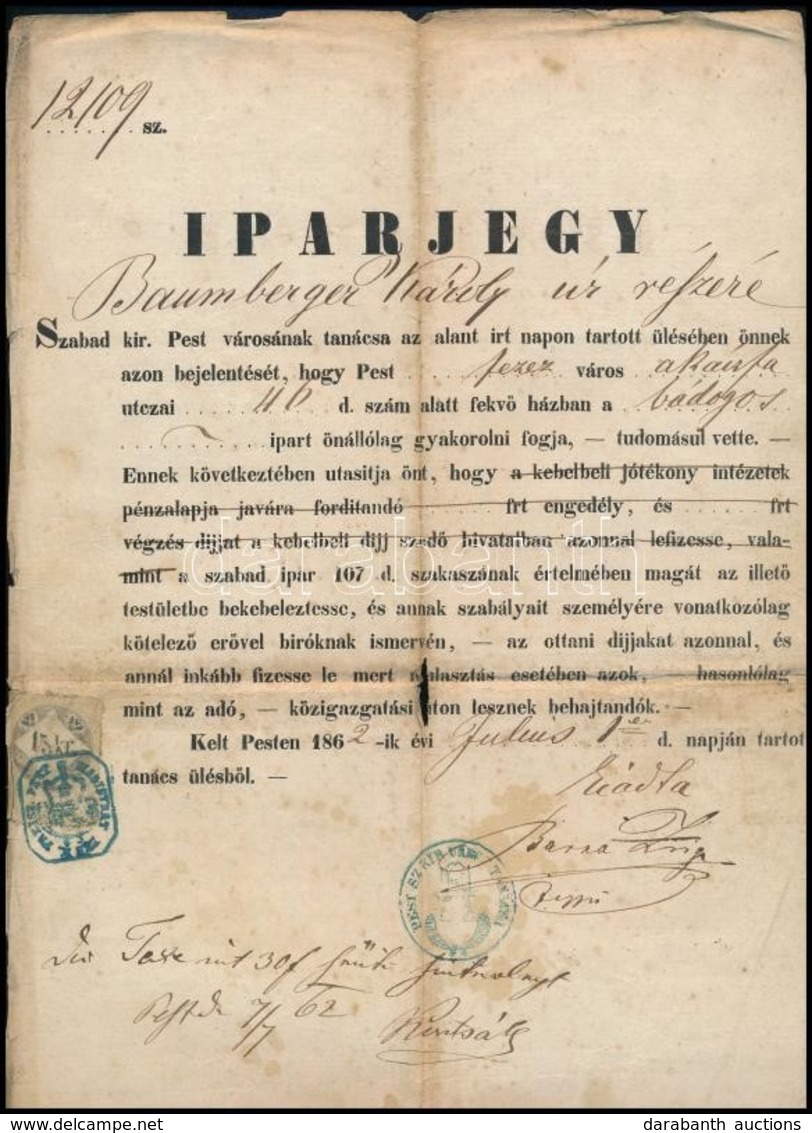 12109 sz.
IPARJEGY
Baumberger Károly úr részére
Szabad kir. Pest városának tanácsa az alant irt napon tartott ülésében önnek
azon bejelentését, hogy Pest terez város akaczfa
utczai 46 d. szám alatt fekvö házban a bádogos
ipart önállólag gyakorolni fogja, — tudomásul vette. —
Ennek következtében utasitja önt, hogy a kebelbeli jótékony intézetek
pénzalapja javára forditandó frt engedély, és frt
végzés dijjat a kebelbeli dijj szedö hivatalban azonnal lefizesse, vala-
mint a szabad ipar 107 d. szakaszának értelmében magát az illetö
testületbe bekebeleztesse, és annak szabályait személyére vonatkozólag
kötelezö erövel biróknak ismervén, — az ottani dijjakat azonnal, és
annál inkább fizesse le mert mulasztás esetében azok, — hasonlólag
mint az adó, — közigazgatási úton lesznek behajtandók. —
Kelt Pesten 1862-ik évi Julius 1 d. napján tartot
tanács ülésböl. —
15 kr.
Kiádta
PEST SZ KIR VÁR TANÁCSA
Die Taxe mit 30f
Pest d 7/7 62
darabanth
darabanth auctions